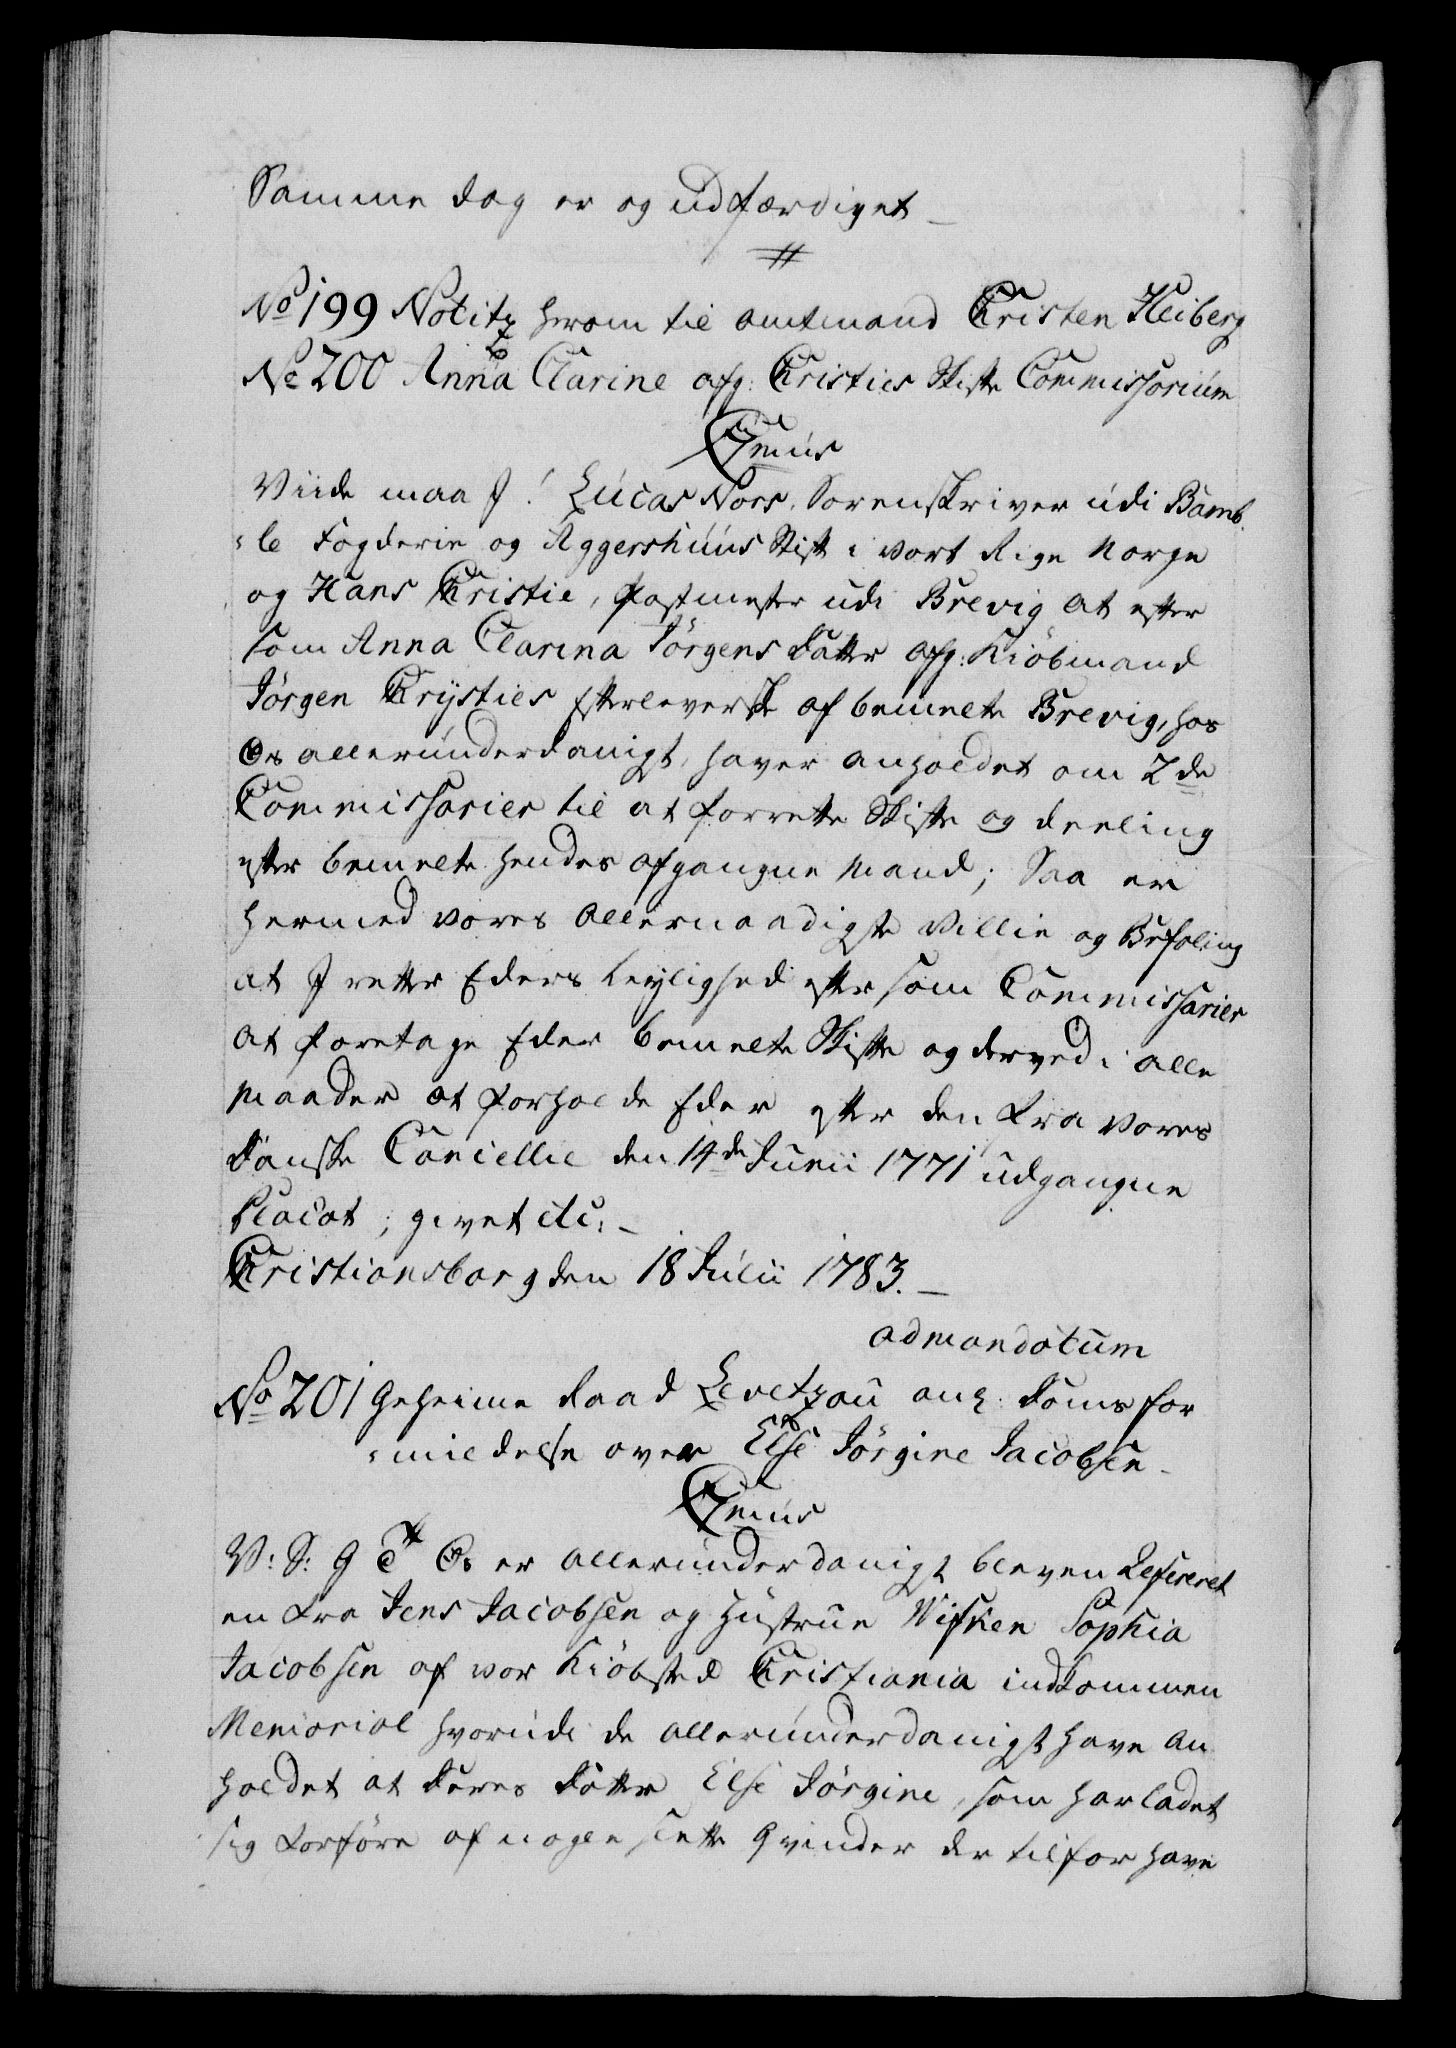 Samme dag er og udfærdiget
No 199 Notitz herom til Amtmand Christen Heiberg
No 200 Anna Clarine afg: Christies Skifte Commissorium
C7mus
Viide maa I! Lucas Nors, Sorenskriver udi Bamb¬
le Fogderie og Aggershuus Stift i vort Rige Norge
og Hans Christie, Postmester udi Brevig at efter
som Anna Clarina Jörgens Datter afg: Kiöbmand
Jörgen Chrysties Efterleverske af bemelte Brevig, hos
Os allerunderdanigst haver anholdet om 2de
Commissarier til at forrette Skifte og deeling
efter bemelte hendes afgangne Mand; Saa er
hermed vores allernaadigste Villie og Befaling
at I retter Eders leylighed efter som Commissarier
at foretage Eder bemelte Skifte og derved i alle
Maader at forholde Eder efter den fra vores
Danske Cancellie den 14de Junii 1771 udgangne
Placat; givet etc:
Christiansborg den 18 Julii 1783.
ad mandatum
No 201 Geheime Raad Levetzau ang: Doms for
mildelse over Else Jörgine Jacobsen
C7mus
V: S: G T Os er allerunderdanigst bleven Refereret
en fra Jens Jacobsen og Hustrue Wifken Sophia
Jacobsen af vor Kiöbsted Christiania indkommen
Memorial hvorudi de allerunderdanigst have an
holdet at deres Datter Else Jörgine, som har ladet
sig forföre af nogle slette Qvinder der tilforhave